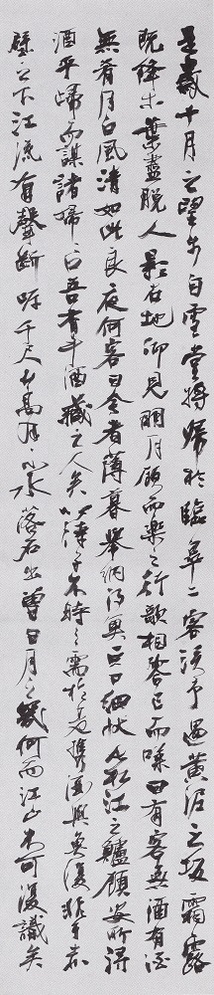 是歲十月之望步自雪堂將歸於臨皋二客從予過黃泥之坂霜露
既降木葉盡脫人影在地仰見明月顧而樂之行歌相答已而嘆曰有客無酒有酒
無肴月白風清如此良夜何客曰今者薄暮舉網得魚巨口細狀似松江之鱸顧安所得
酒乎歸而謀諸婦々曰吾有斗酒藏之久矣以待子不時之需於是攜酒與魚復遊於赤
壁之下江流有聲斷岸千尺山高月小水落石出曾日月之幾何而江山不可復識矣